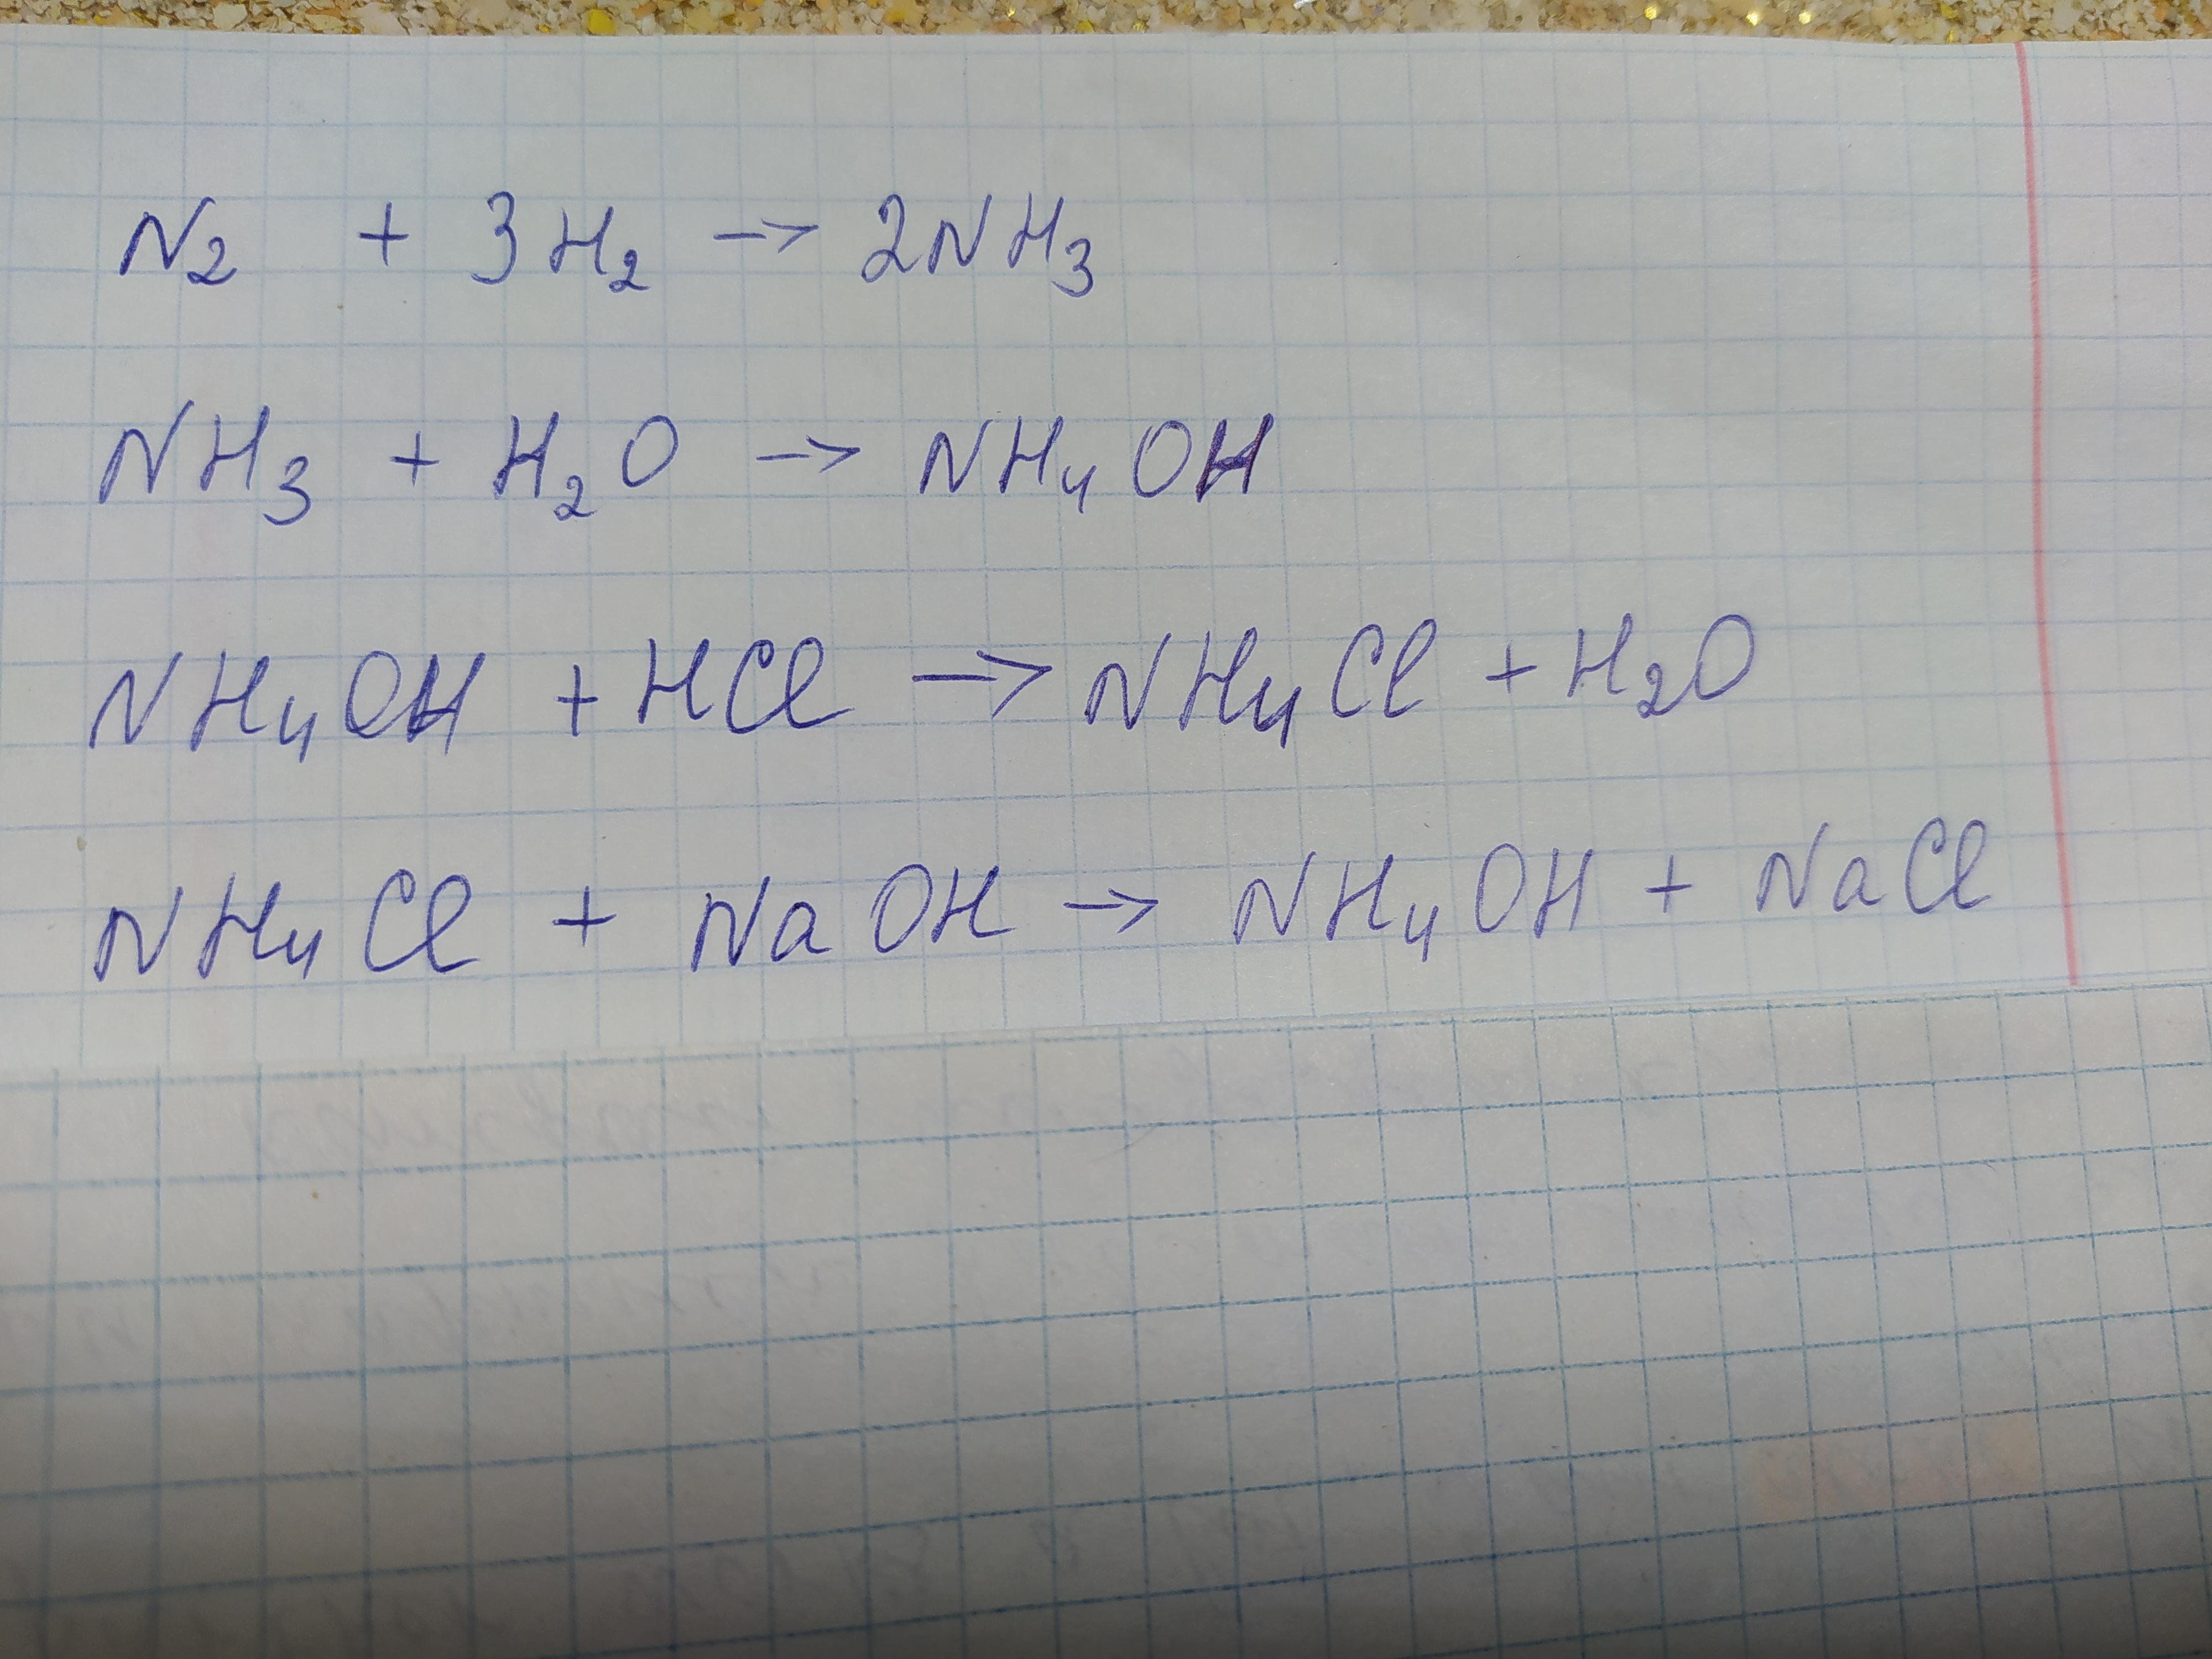 N₂ + 3H₂ → 2NH₃
NH₃ + H₂O → NH₄OH
NH₄OH + HCl → NH₄Cl + H₂O
NH₄Cl + NaOH → NH₄OH + NaCl